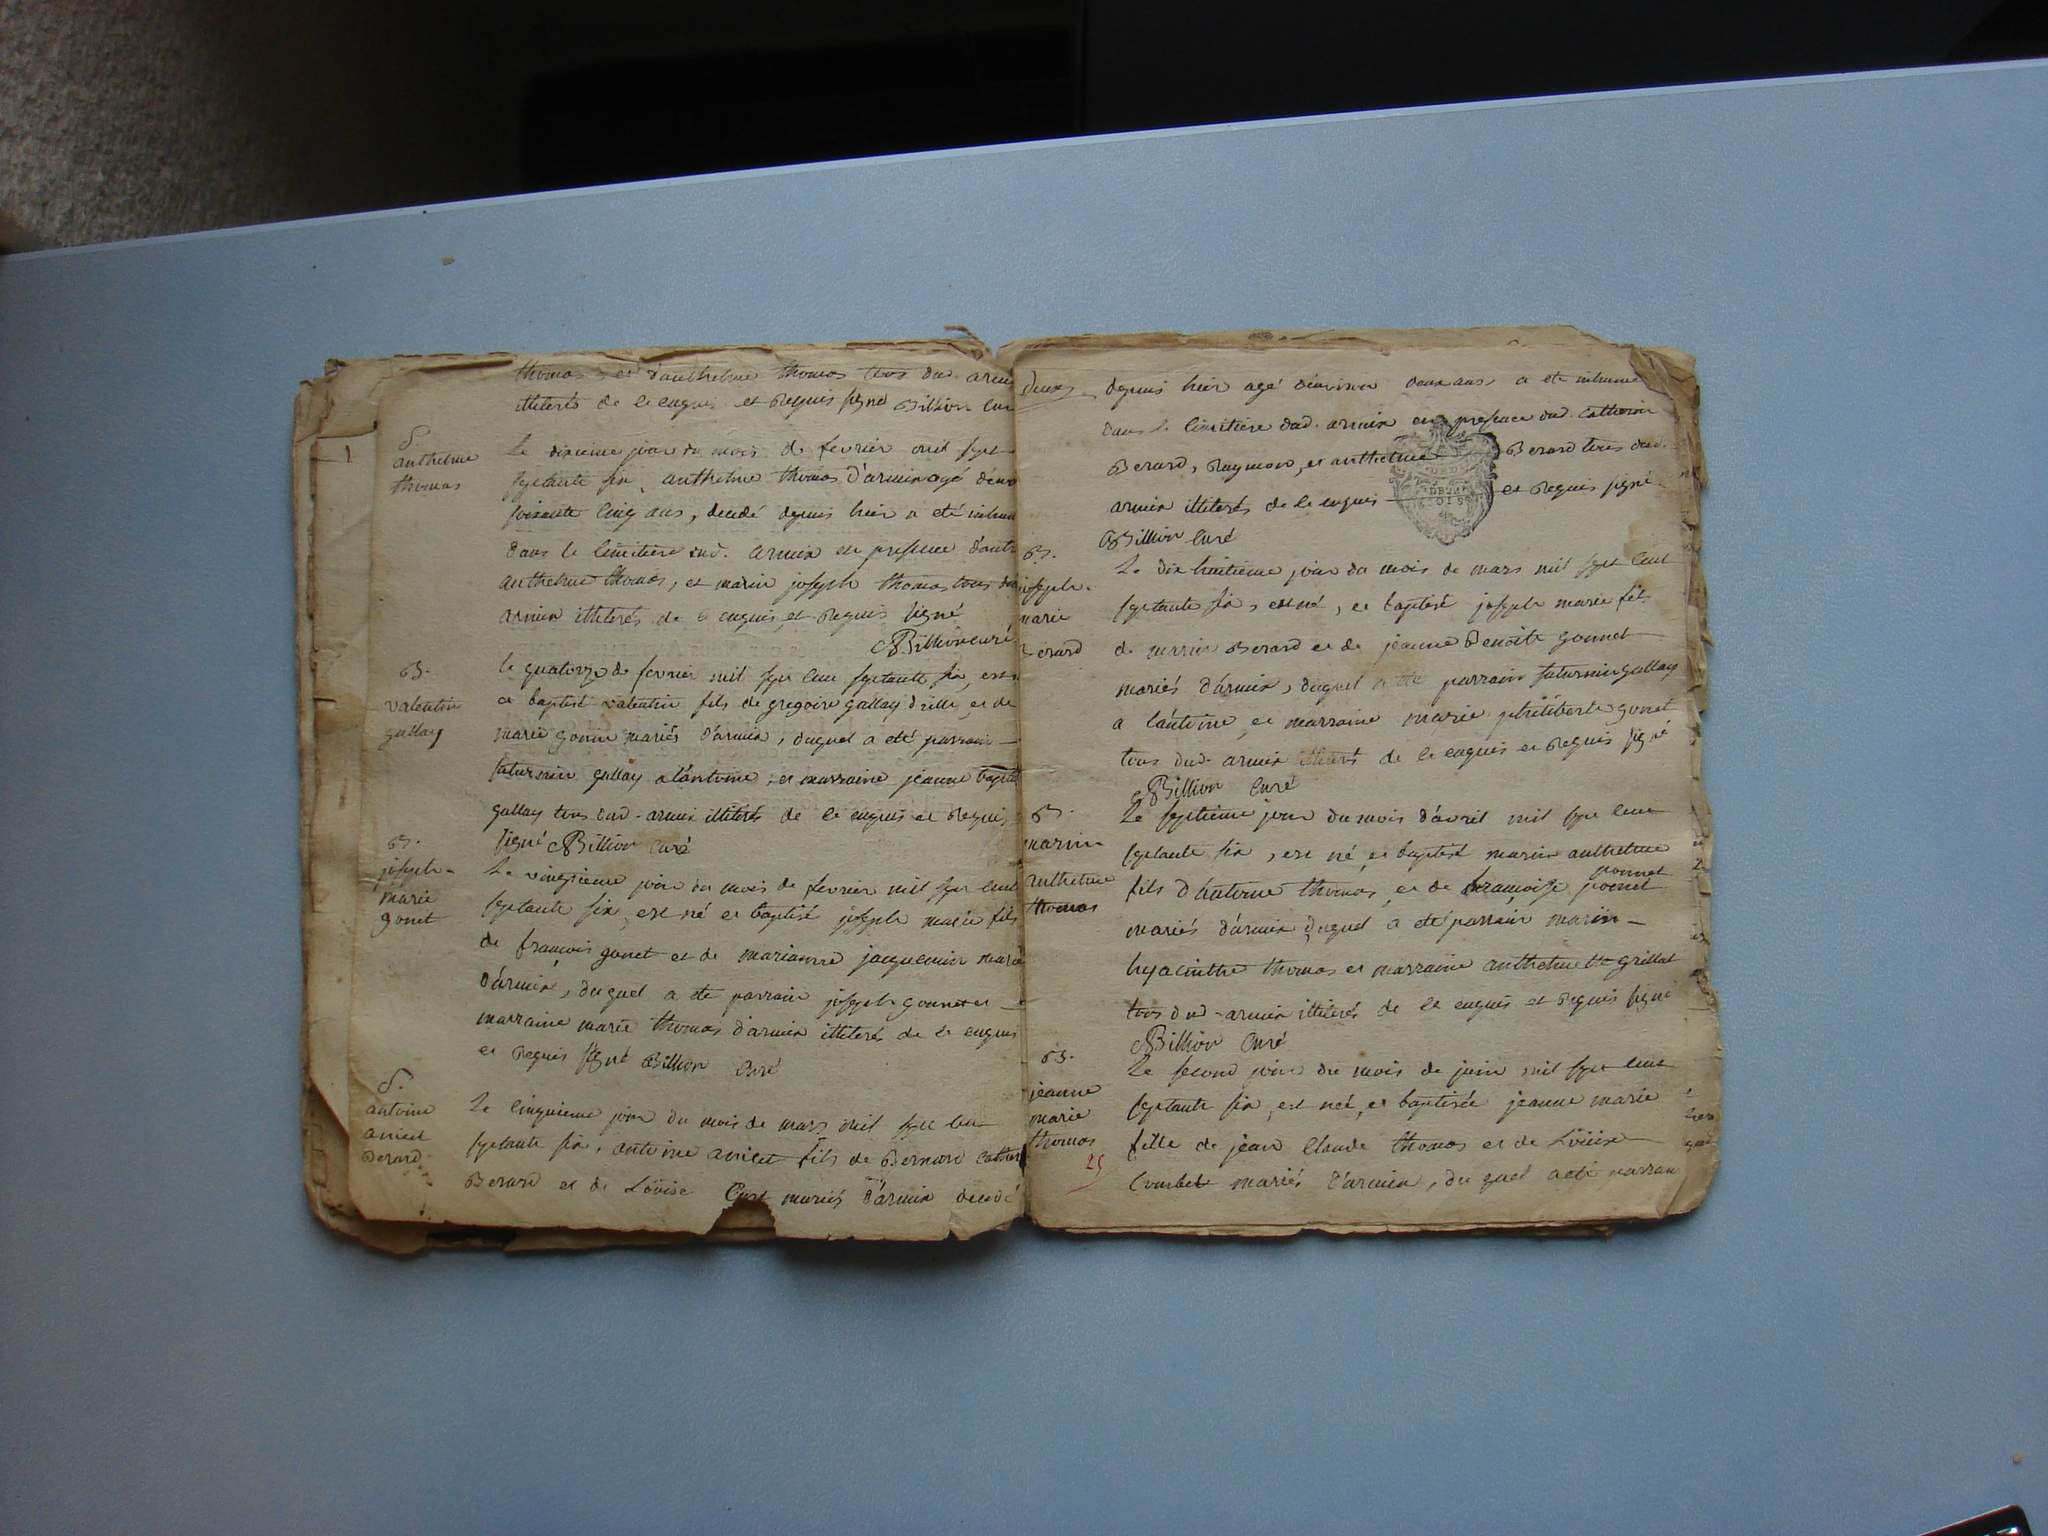 thomas et d'anthelme thomas tous dud. armix
illiterés de ce enquis et requis signé Billion curé
S.
anthelme
thomas
Le dixieme jour du mois de fevrier mil sept
septante six, anthelme thomas d'armix agé d'env
soixante cinq ans, decedé depuis hier a eté inhum
dans le cimitière dud. armix en presence d'ant
anthelme thomas, et marin joseph thomas tous dud
armix illiterés de ce enquis et requis signé
Billion curé
B.
valentin
gallay
le quatorze de fevrier mil sept cent septante six, est n
et baptisé valentin fils de gregoire gallay d'ille, et de
marie gonin mariés d'armix, duquel a eté parrain
saturnin gallay a l'antoine, et marraine jeanne baptis
gallay tous dud. armix illiterés de ce enquis et requis
signé Billion curé
B.
joseph
marie
gonet
Le vingtieme jour du mois de fevrier mil sept cent
septante six, est né et baptisé joseph marie fils
de françois gonet et de marianne jacquemin marié
d'armix, duquel a eté parrain joseph gonnet et
marraine marie thomas d'armix illiterés de ce enquis
et requis signé Billion curé
S.
antoine
anicet
Berard
Le cinquieme jour du mois de mars mil sept cent
septante six, antoine anicet fils de Bernard cather
Berard et de Loüise Cust mariés d'armix decedé
deux
depuis hier agé d'environ deux ans a eté inhumé
dans le cimitière dud. armix en presence dud. catherin
Berard, Raymon, et anthelme Berard tous dud.
armix illiterés de ce enquis et requis signé
Billion curé
B.
joseph
marie
Berard
Le dix huitieme jour du mois de mars mil sept cent
septante six, est né, et baptisé joseph marie fils
de marin Berard et de jeanne Benoite gonnet
mariés d'armix, duquel a eté parrain saturnin gallay
a l'antoine, et marraine marie philiberte gonet
tous dud. armix illiterés de ce enquis et requis signé
Billion curé
B.
marin
anthelme
thomas
Le septieme jour du mois d'avril mil sept cent
septante six, est né et baptisé marin anthelme
ponnet
fils d'antoine thomas, et de françoise ponnet
mariés d'armix duquel a eté parrain marin
hyacinthe thomas et marraine anthelmette grillat
tous dud. armix illiterés de ce enquis et requis signé
Billion curé
B.
jeanne
marie
thomas
25
Le second jour du mois de juin mil sept cent
septante six, est née, et baptisée jeanne marie
fille de jean claude thomas et de Loüise
Courbet mariés d'armix, du quel a eté parrain